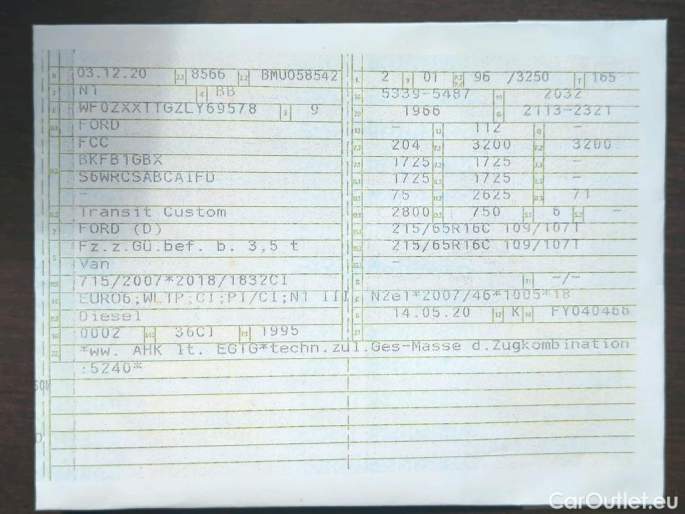 03.12.20 8566 BMU058542 2 01 96 /3250 165
N1 BB 5339-5487 2032
WF0ZXXTTGZLY69578 9 1966 2113-2321
FORD - 112 -
FCC 204 3200 3200
BKFB1GBX 1725 1725 -
S6WRCSABCAIFD 1725 1725 -
- 75 2625 71
Transit Custom 2800 750 6 -
FORD (D) 215/65R16C 109/107T
Fz.z.Gü.bef. b. 3,5 t 215/65R16C 109/107T
Van -
715/2007*2018/1832CI -/-
EURO6;WLTP;CI;PI/CI;N1 III N2e1*2007/46*1005*18
Diesel 14.05.20 K FY040466
0002 36CI 1995
*ww. AHK lt. EGTG*techn.zul.Ges-Masse d.Zugkombination
:5240*
CarOutlet.eu